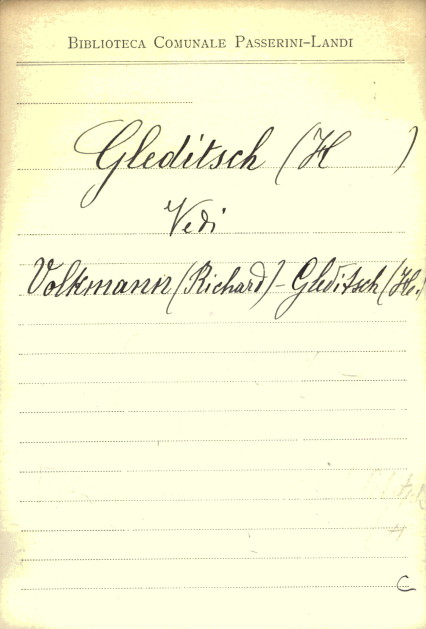 BIBLIOTECA COMUNALE PASSERINI-LANDI
Gleditsch (H )
Vedi
Volkmann (Richard) - Gleditsch (H.)
C